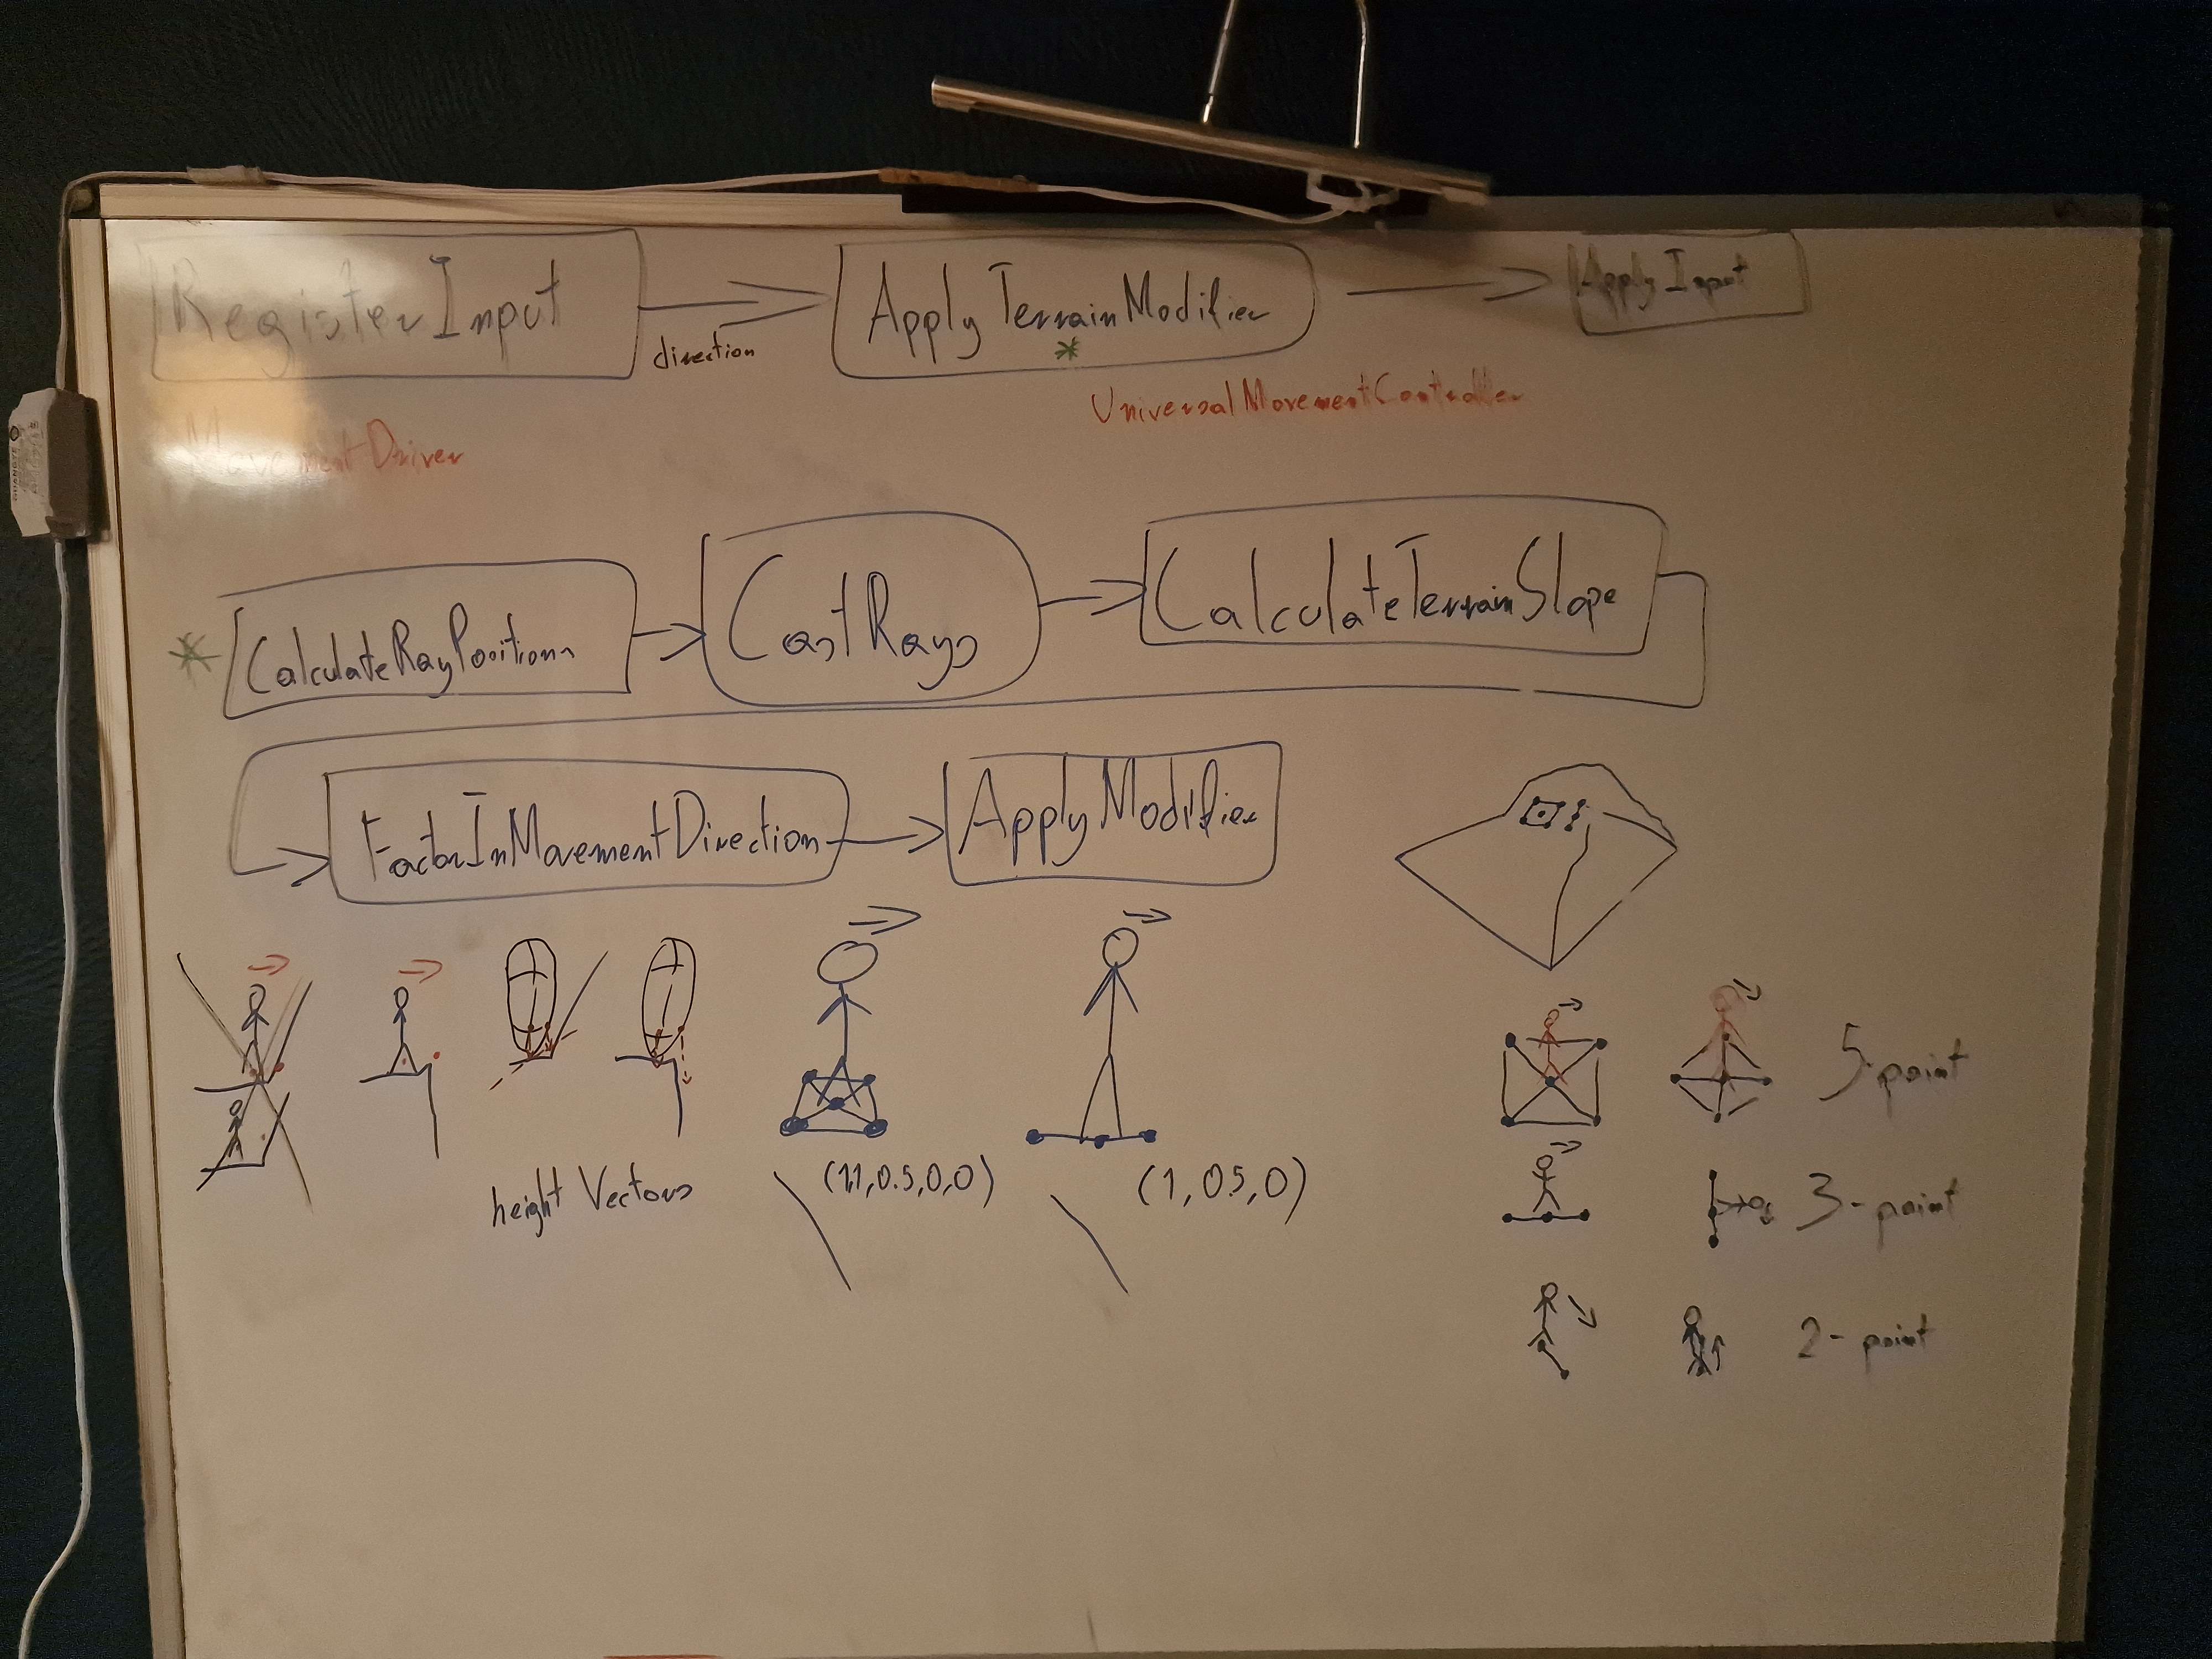 RegisterInput
direction
ApplyTerrainModifier
*
ApplyInput
UniversalMovementController
MovementDriver
*
CalculateRayPositions
CastRays
CalculateTerrainSlope
FactorInMovementDirection
ApplyModifier
height Vectors
(1,1,0.5,0,0)
(1, 0.5, 0)
5-point
3-point
2-point